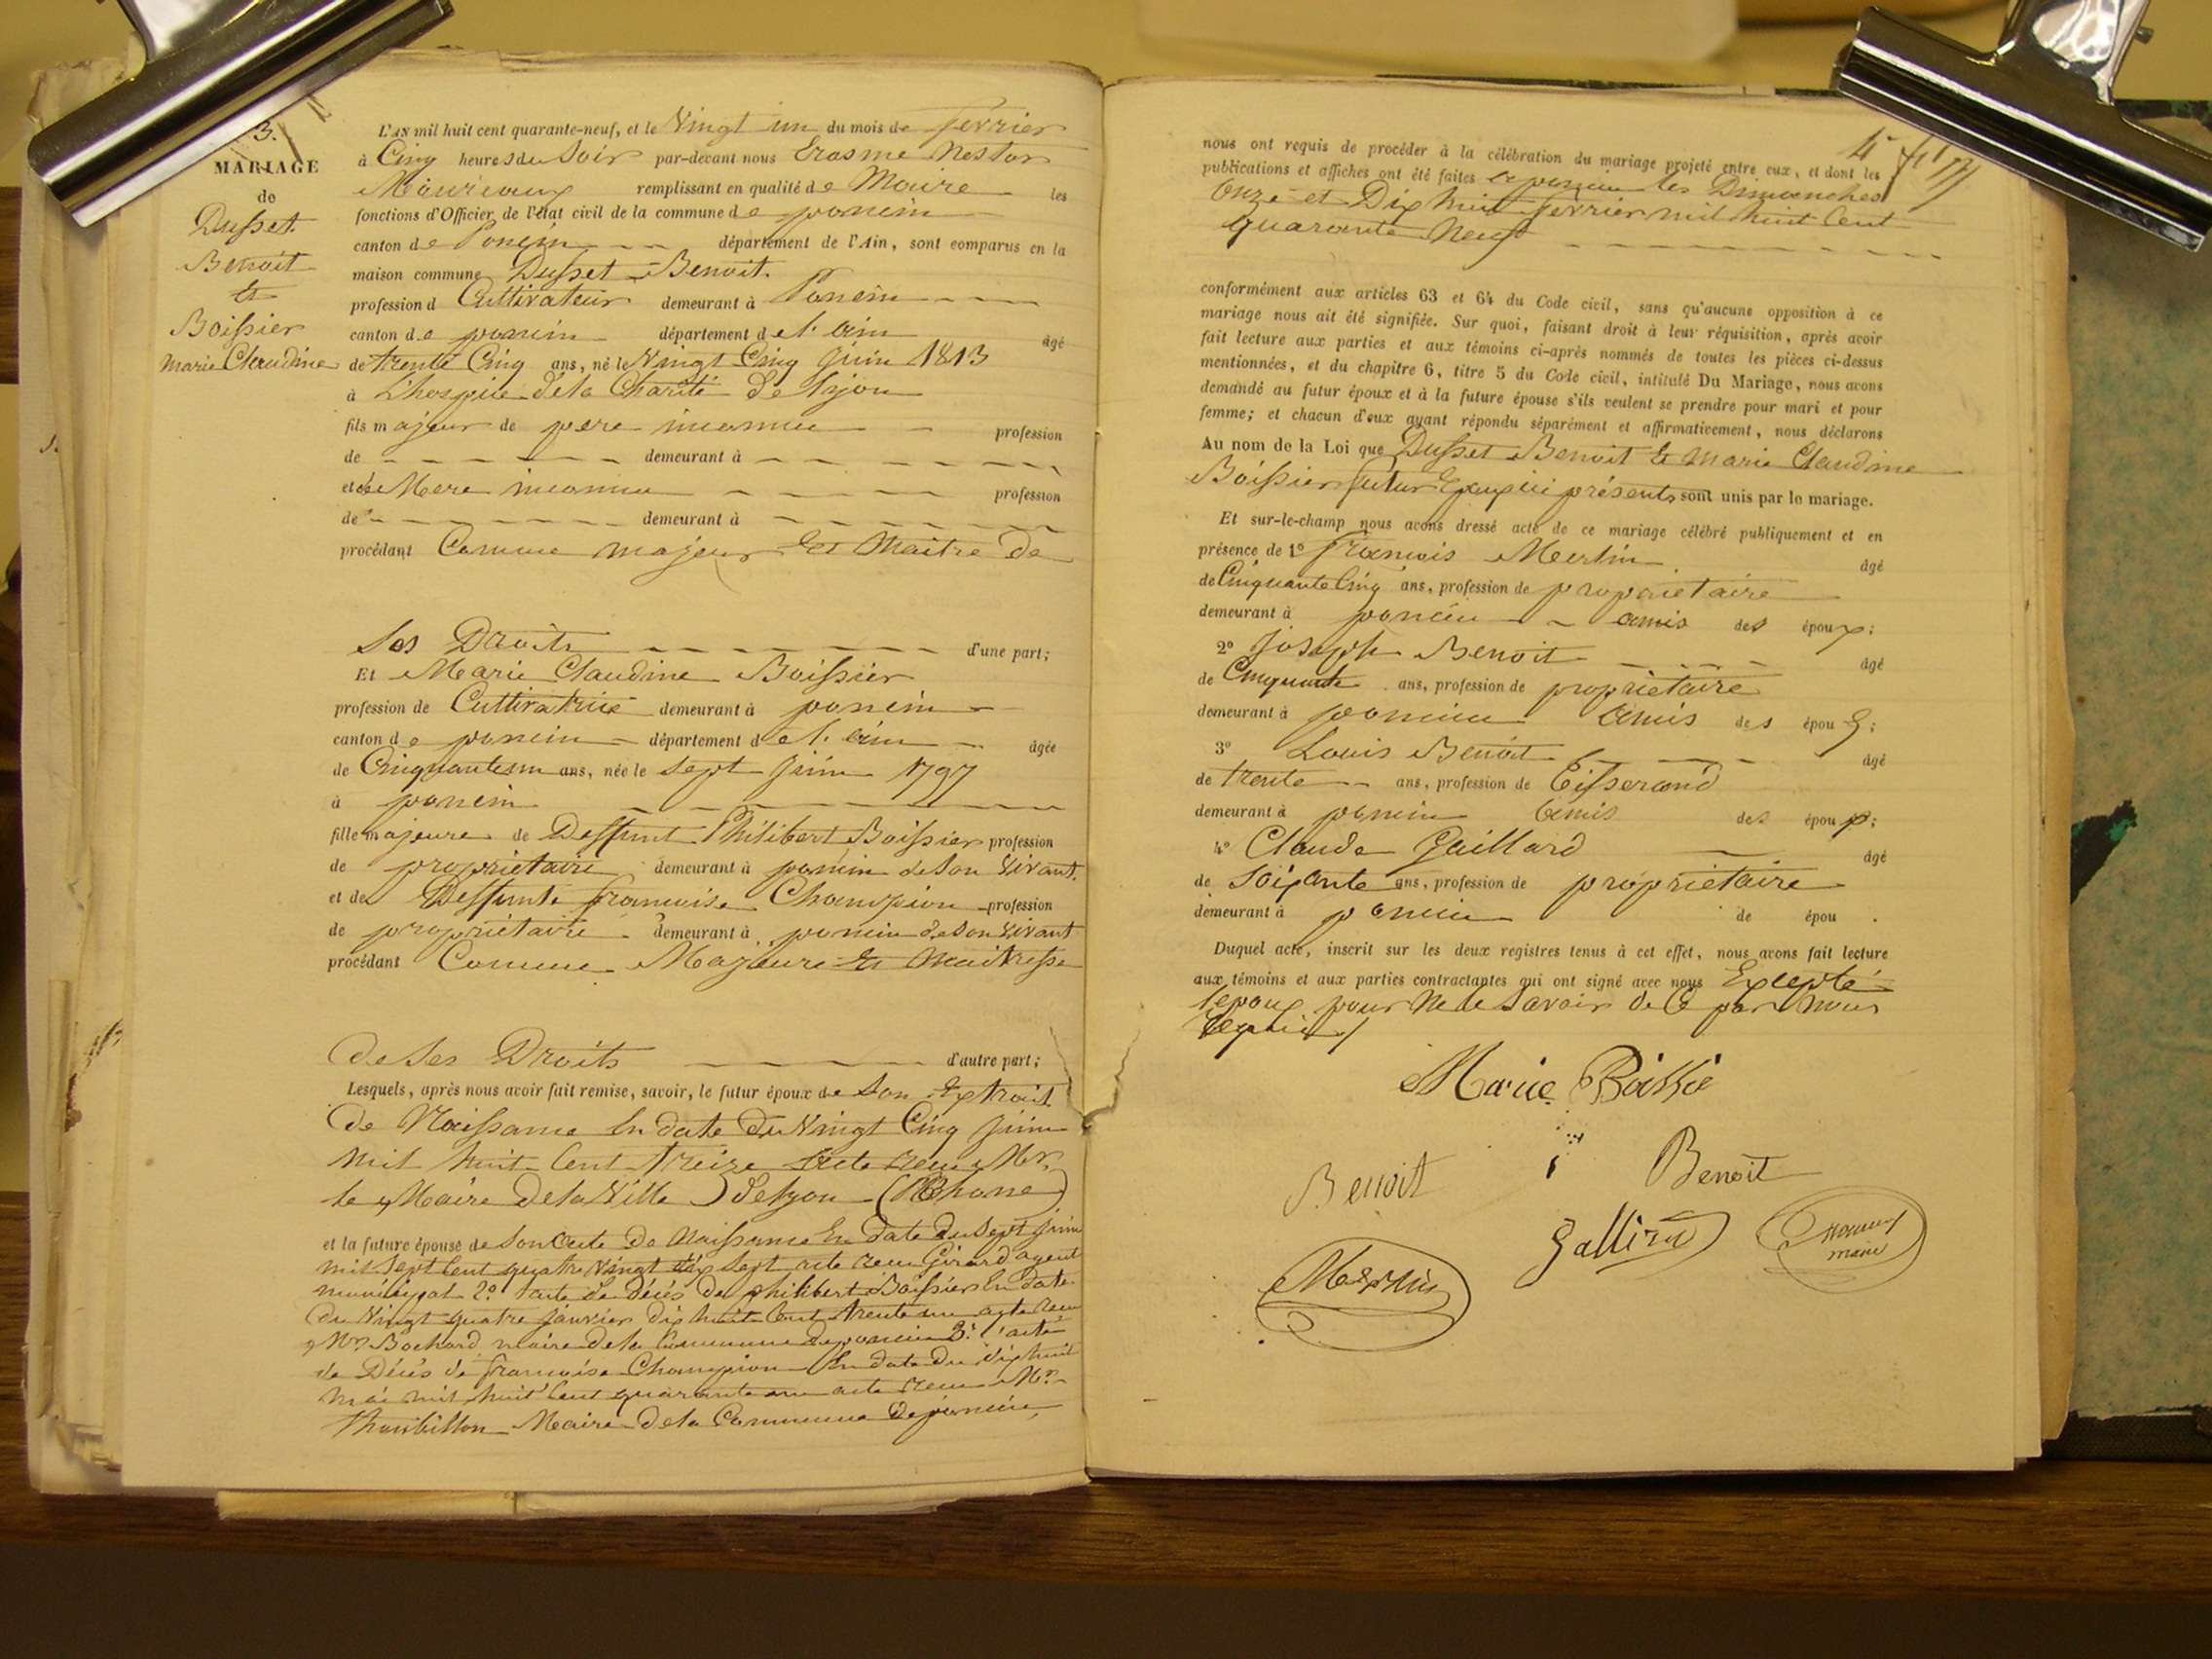 3.
MARIAGE
de
Dusset
Benoit
et
Boissier
Marie Claudine
L'AN mil huit cent quarante-neuf, et le Vingt un du mois de fevrier
à Cinq heures du Soir par-devant nous Erasme Nestor
remplissant en qualité de Maire les
fonctions d'Officier de l'état civil de la commune de poncin
canton de Poncin département de l'Ain, sont comparus en la
maison commune Dusset Benoit.
profession d Cultivateur demeurant à Poncin
canton de poncin département de l'ain âgé
de trente Cinq ans, né le Vingt Cinq Juin 1813
à L'hospice de la Charité de Lyon
fils majeur de pere inconnu profession
de demeurant à
et de Mere inconnu profession
de demeurant à
procédant Comme majeur et Maitre de
Ses Droits d'une part;
Et Marie Claudine Boissier
profession de Cultivatrice demeurant à poncin
canton de poncin département de l'ain âgée
de Cinquante un ans, née le Sept Juin 1797
à poncin
fille majeure de Deffunt Philibert Boissier profession
de propriétaire demeurant à poncin de Son Vivant.
et de Deffunte francoise Champion profession
de propriétaire demeurant à poncin de Son Vivant
procédant Comme Majeure et Maitresse
de Ses Droits d'autre part;
Lesquels, après nous avoir fait remise, savoir, le futur époux de Son Extrait
de Naissance En date du Vingt Cinq Juin
Mil huit Cent treize acte recu Mr.
le Maire de la Ville de Lyon (Rhone)
et la future épouse de Son acte de Naissance En date du Sept Juin
mil Sept Cent quatre Vingt dix Sept acte recu Girard agent
municipal 2° acte de décès de philibert Boissier En date
du Vingt quatre Janvier dix huit Cent trente un acte recu
Mr. Bochard maire de la Commune de poncin 3° l'acte
de Décès de francoise Champion En date du dix huit
mai mil huit Cent quarante un acte recu Mr.
Maire de la Commune de poncin
4
nous ont requis de procéder à la célébration du mariage projeté entre eux, et dont les
publications et affiches ont été faites a poncin les Dimanches
Onze et Dix huit fevrier mil huit Cent
quarante Neuf
conformément aux articles 63 et 64 du Code civil, sans qu'aucune opposition à ce
mariage nous ait été signifiée. Sur quoi, faisant droit à leur réquisition, après avoir
fait lecture aux parties et aux témoins ci-après nommés de toutes les pièces ci-dessus
mentionnées, et du chapitre 6, titre 5 du Code civil, intitulé Du Mariage, nous avons
demandé au futur époux et à la future épouse s'ils veulent se prendre pour mari et pour
femme; et chacun d'eux ayant répondu séparément et affirmativement, nous déclarons
Au nom de la Loi que Dusset Benoit et Marie Claudine
Boissier futur Epoux ici présents sont unis par le mariage.
Et sur-le-champ nous avons dressé acte de ce mariage célébré publiquement et en
présence de 1° francois Merlin âgé
de Cinquante Cinq ans, profession de propriétaire
demeurant à poncin amis des époux;
2° Joseph Benoit âgé
de Cinquante ans, profession de propriétaire
demeurant à poncin amis des époux;
3° Louis Benoit âgé
de trente ans, profession de Tisserand
demeurant à poncin amis des époux;
4° Claude Gaillard âgé
de Soixante ans, profession de propriétaire
demeurant à poncin de épou .
Duquel acte, inscrit sur les deux registres tenus à cet effet, nous avons fait lecture
aux témoins et aux parties contractantes qui ont signé avec nous Excepté
l'epoux pour Ne le Savoir de Ce par Nous
Requis
Marie Boissie
Benoit
Benoit
maire